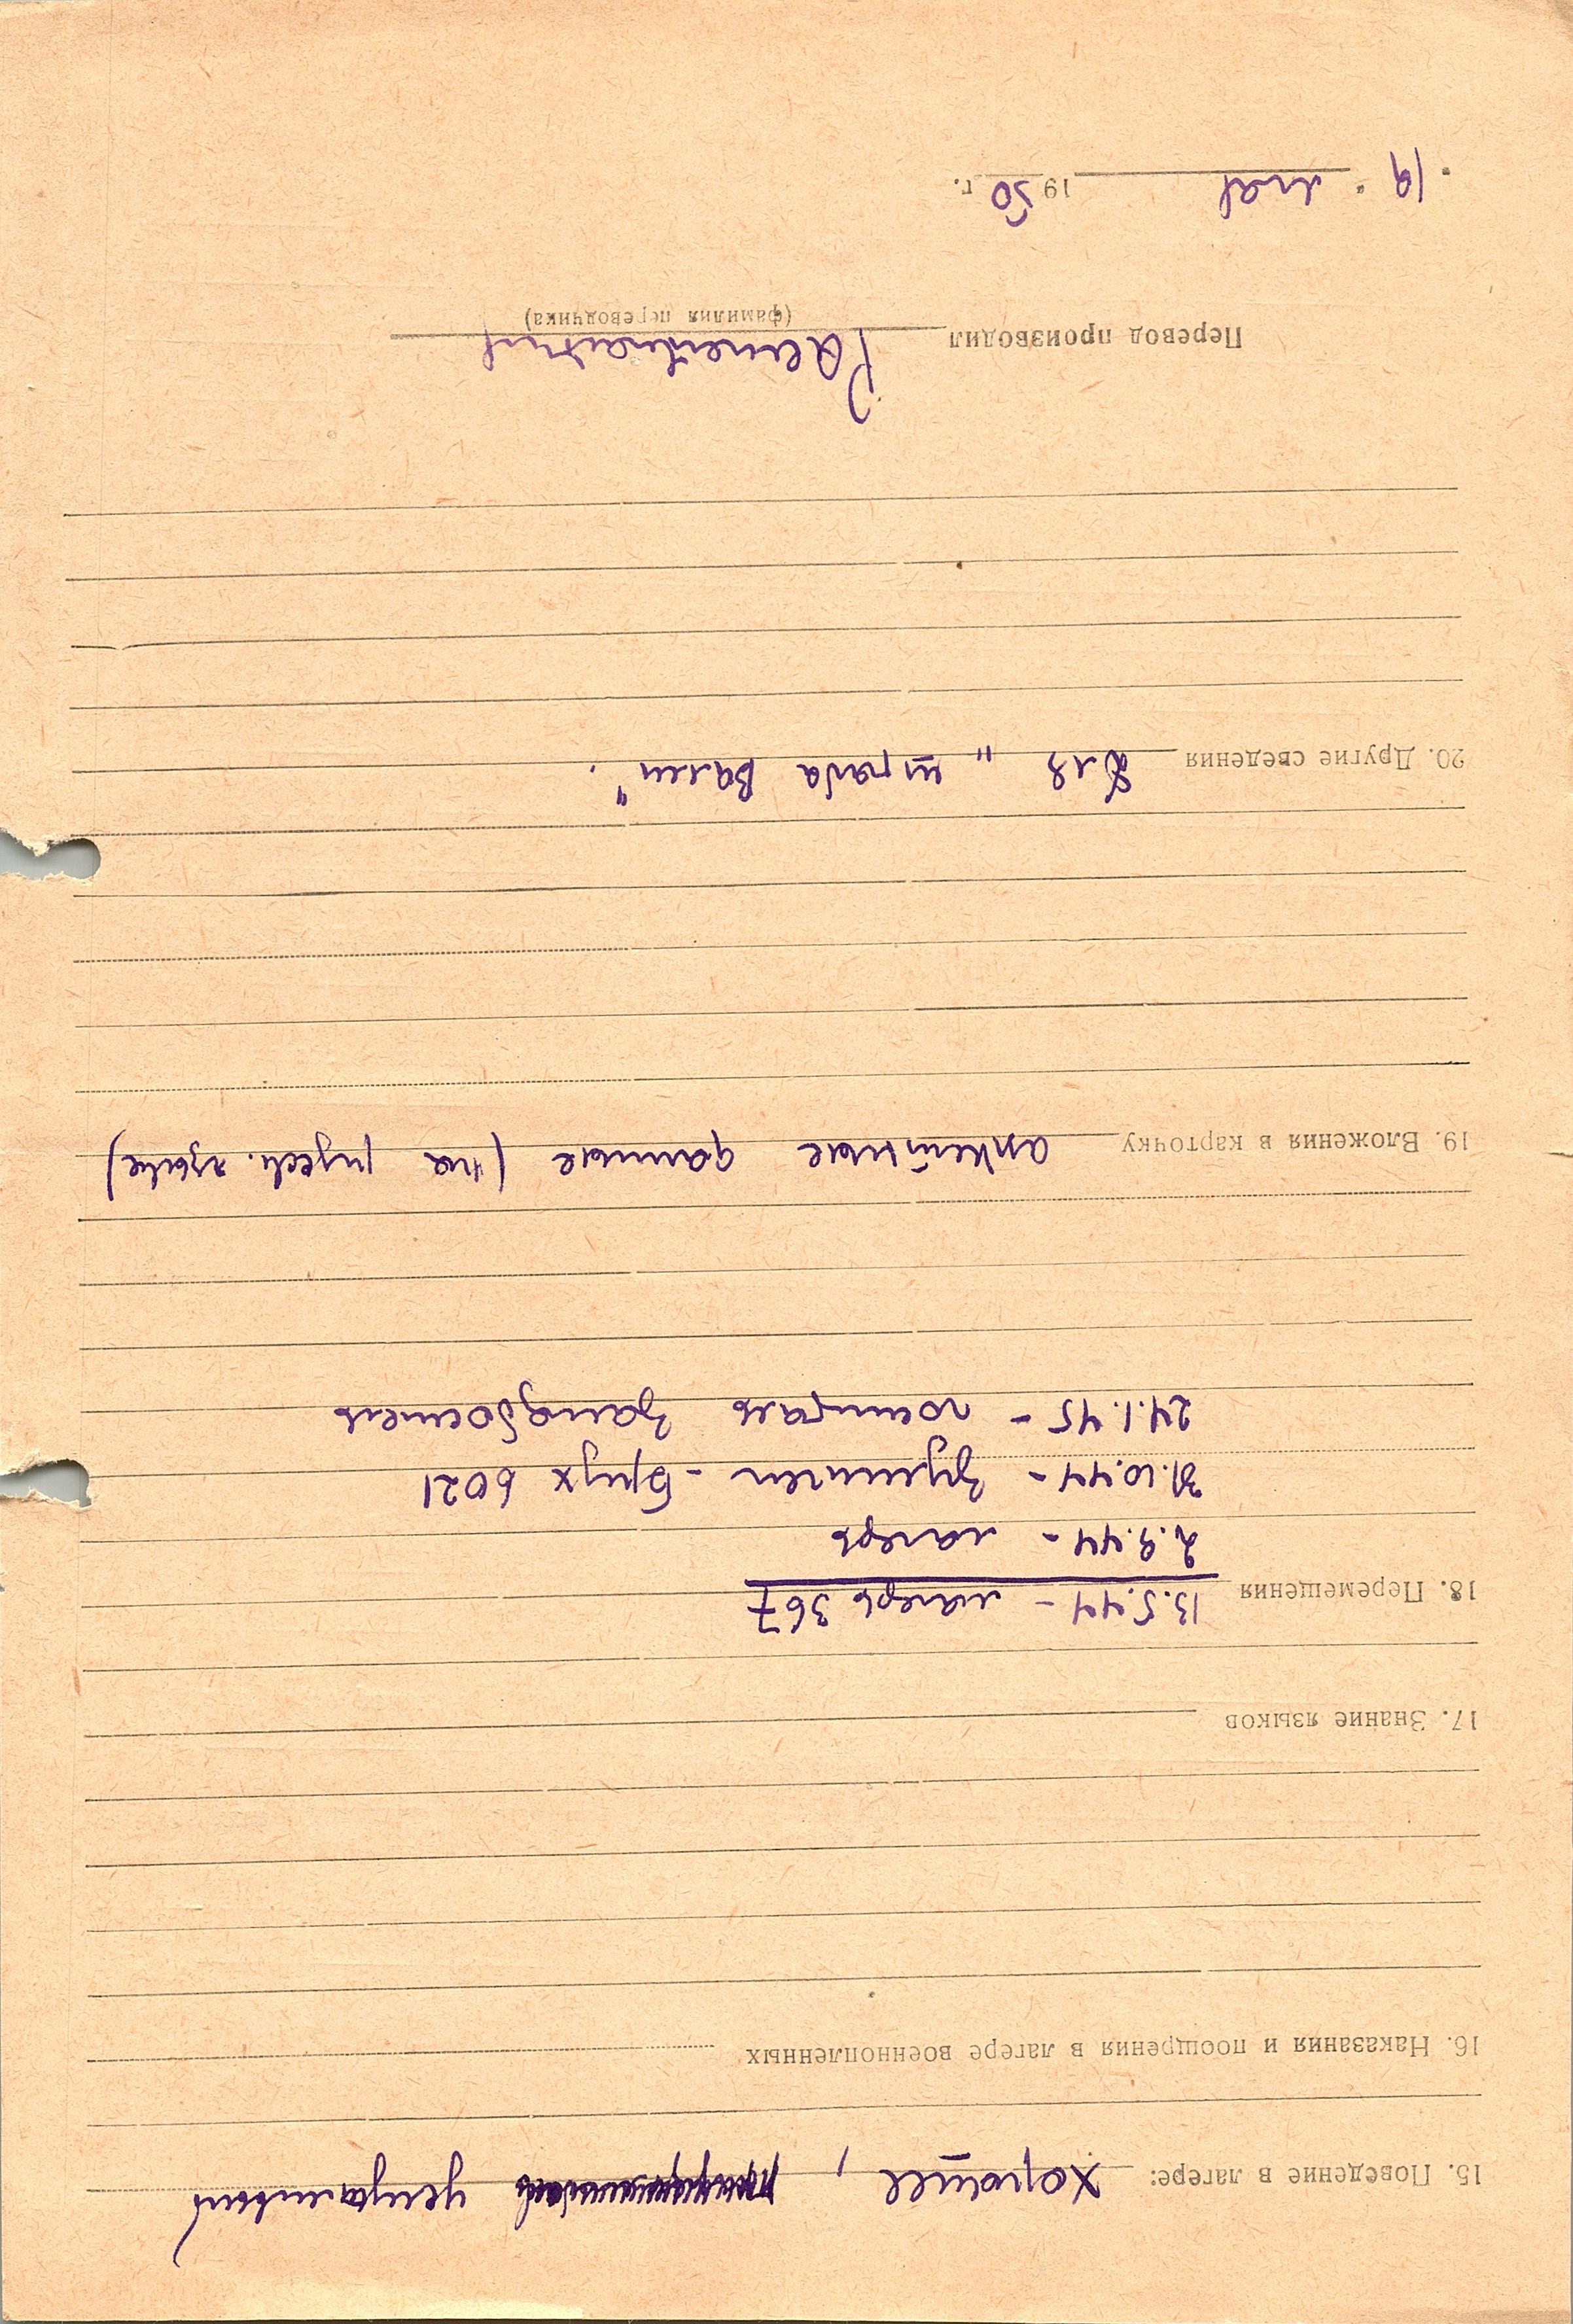 15. Поведение в лагере: хорошее,
16. Наказания и поощрения в лагере военнопленных
17. Знание языков
18. Перемещения 13.5.44 – лагерь 367
2.9.44 – лагерь
31.10.44 – Брух 6021
24.1.45 – госпиталь
19. Вложения в карточку анкетные данные (на русск. языке)
20. Другие сведения Для "
Перевод производил
(фамилия переводчика)
"19" мая 1950 г.